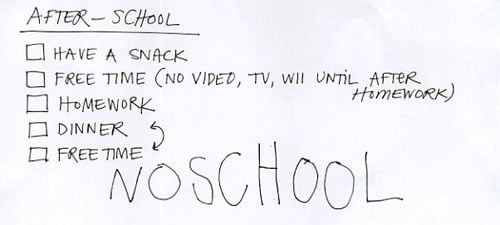 AFTER-SCHOOL
HAVE A SNACK
FREE TIME (NO VIDEO, TV, WII UNTIL AFTER
HOMEWORK)
HOMEWORK
DINNER
FREE TIME
NOSCHOOL